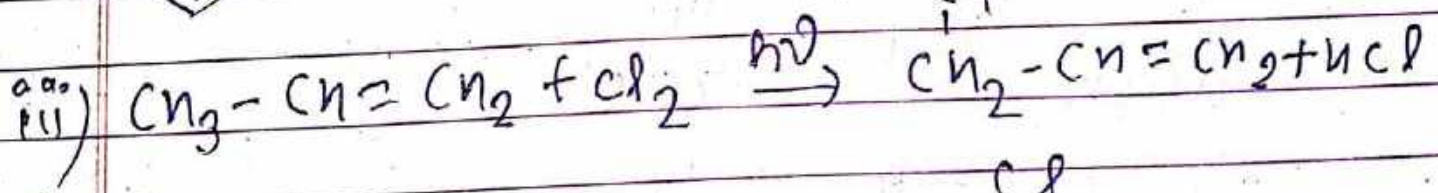 iii) CH₃ - CH = CH₂ + Cl₂ hν→ CH₂ - CH = CH₂ + HCl
Cl